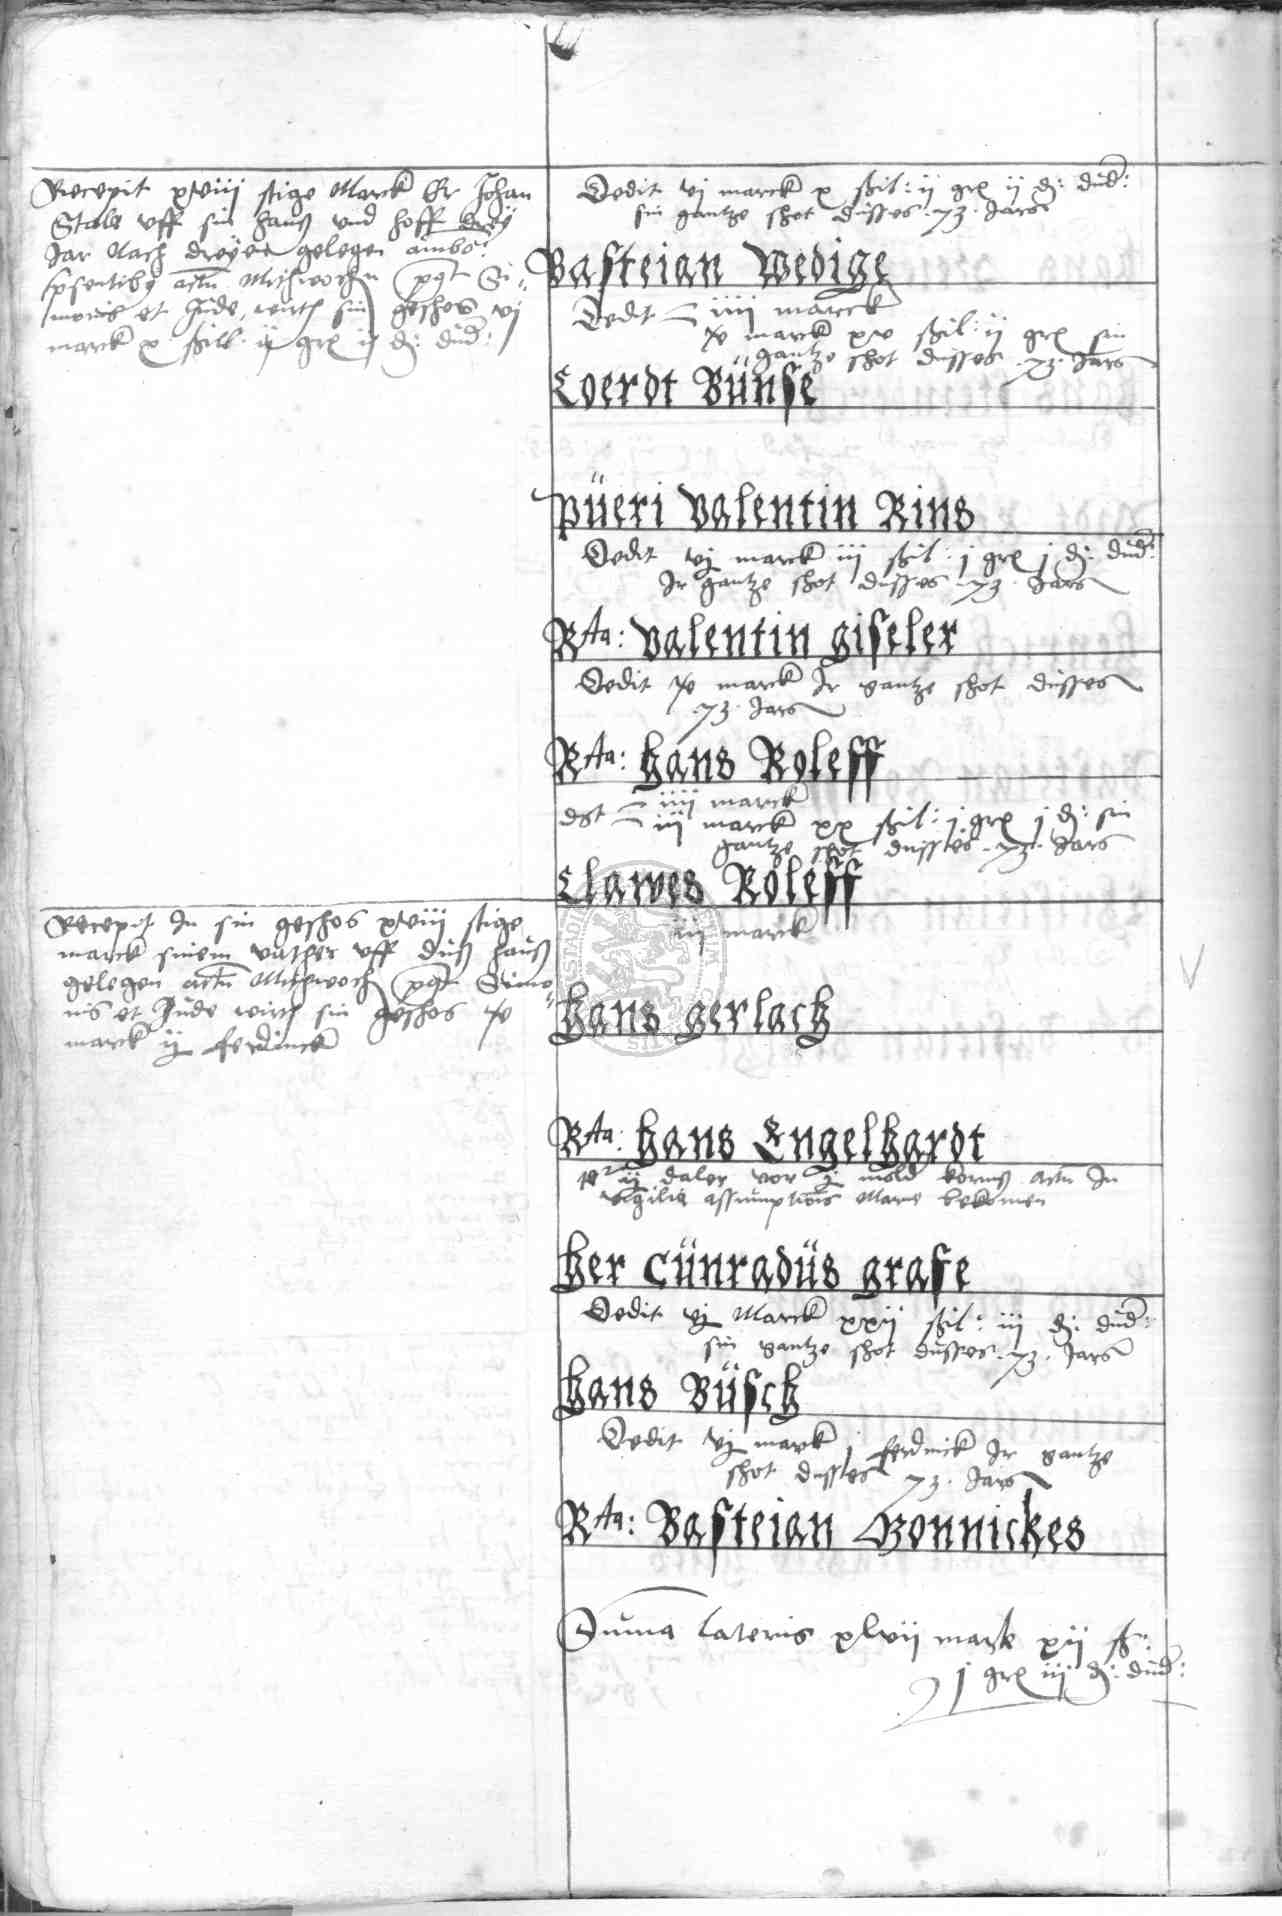 Recepit xviij stige Marck Er Johan
Stals uff sin hauß und hoff drey
Jar Nach dreyen gelegen ambo:
psentibg actu Mithwochn pqt Si-
monis et Jude, wirth sin geshos vj
marck x ßill: ij grs ij d: dud:
Dedit vj marck x ßil: ij grs ij d: dud:
sin gantze shot dusses .73. Jars
Basteian Wedige
Dedit iiij marck
xv ßil: ij grs sin
gantze shot dusses .73. Jars
Coerdt Bünse
püeri valentin Rins
Dedit vj marck iij ßil: j grs j d: dud:
Jr gantze shot dusses .73. Jars
Rta: valentin giseler
Dedit marck Jr gantze shot dusses
.73. Jars
Rta: hans Roleff
dt iiij marck
iij marck xx ßil: j grs j d: sin
gantze shot dusses .73. Jars
Clawes Roleff
Recepit In sin geshos xviij stige
marck sinem vather uff duß hauß
gelegen actu Mithwoch pqt Simo-
nis et Jude wirth sin geshos
marck ij ferdinck
iij marck
hans gerlach
Rta: hans Engelhardt
ij daler vor j mold korns actu In
vigilia assumptiois Marie bekomen
her Cünradüs grase
Dedit vj Marck xxij ßil: iij d: dud:
sin gantze shot dusses .73. Jars
hans Büsch
Dedit vj marck j ferdinck Jr gantze
shot dusses 73. Jars
Rta: Basteian Gonnickes
Suma lateris xlvij mark xij ß:
j grs iij d: dud: